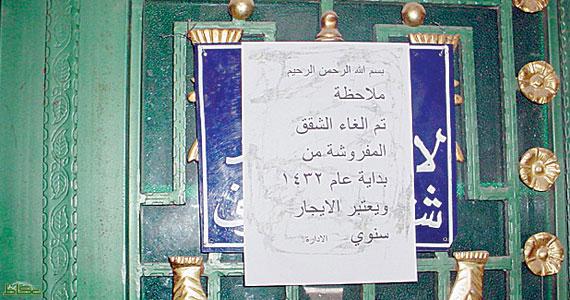 بسم الله الرحمن الرحيم
ملاحظة
تم الغاء الشقق
المفروشة من
بداية عام ١٤٣٢
ويعتبر الايجار
سنوي
الادارة
لا
عكاظ